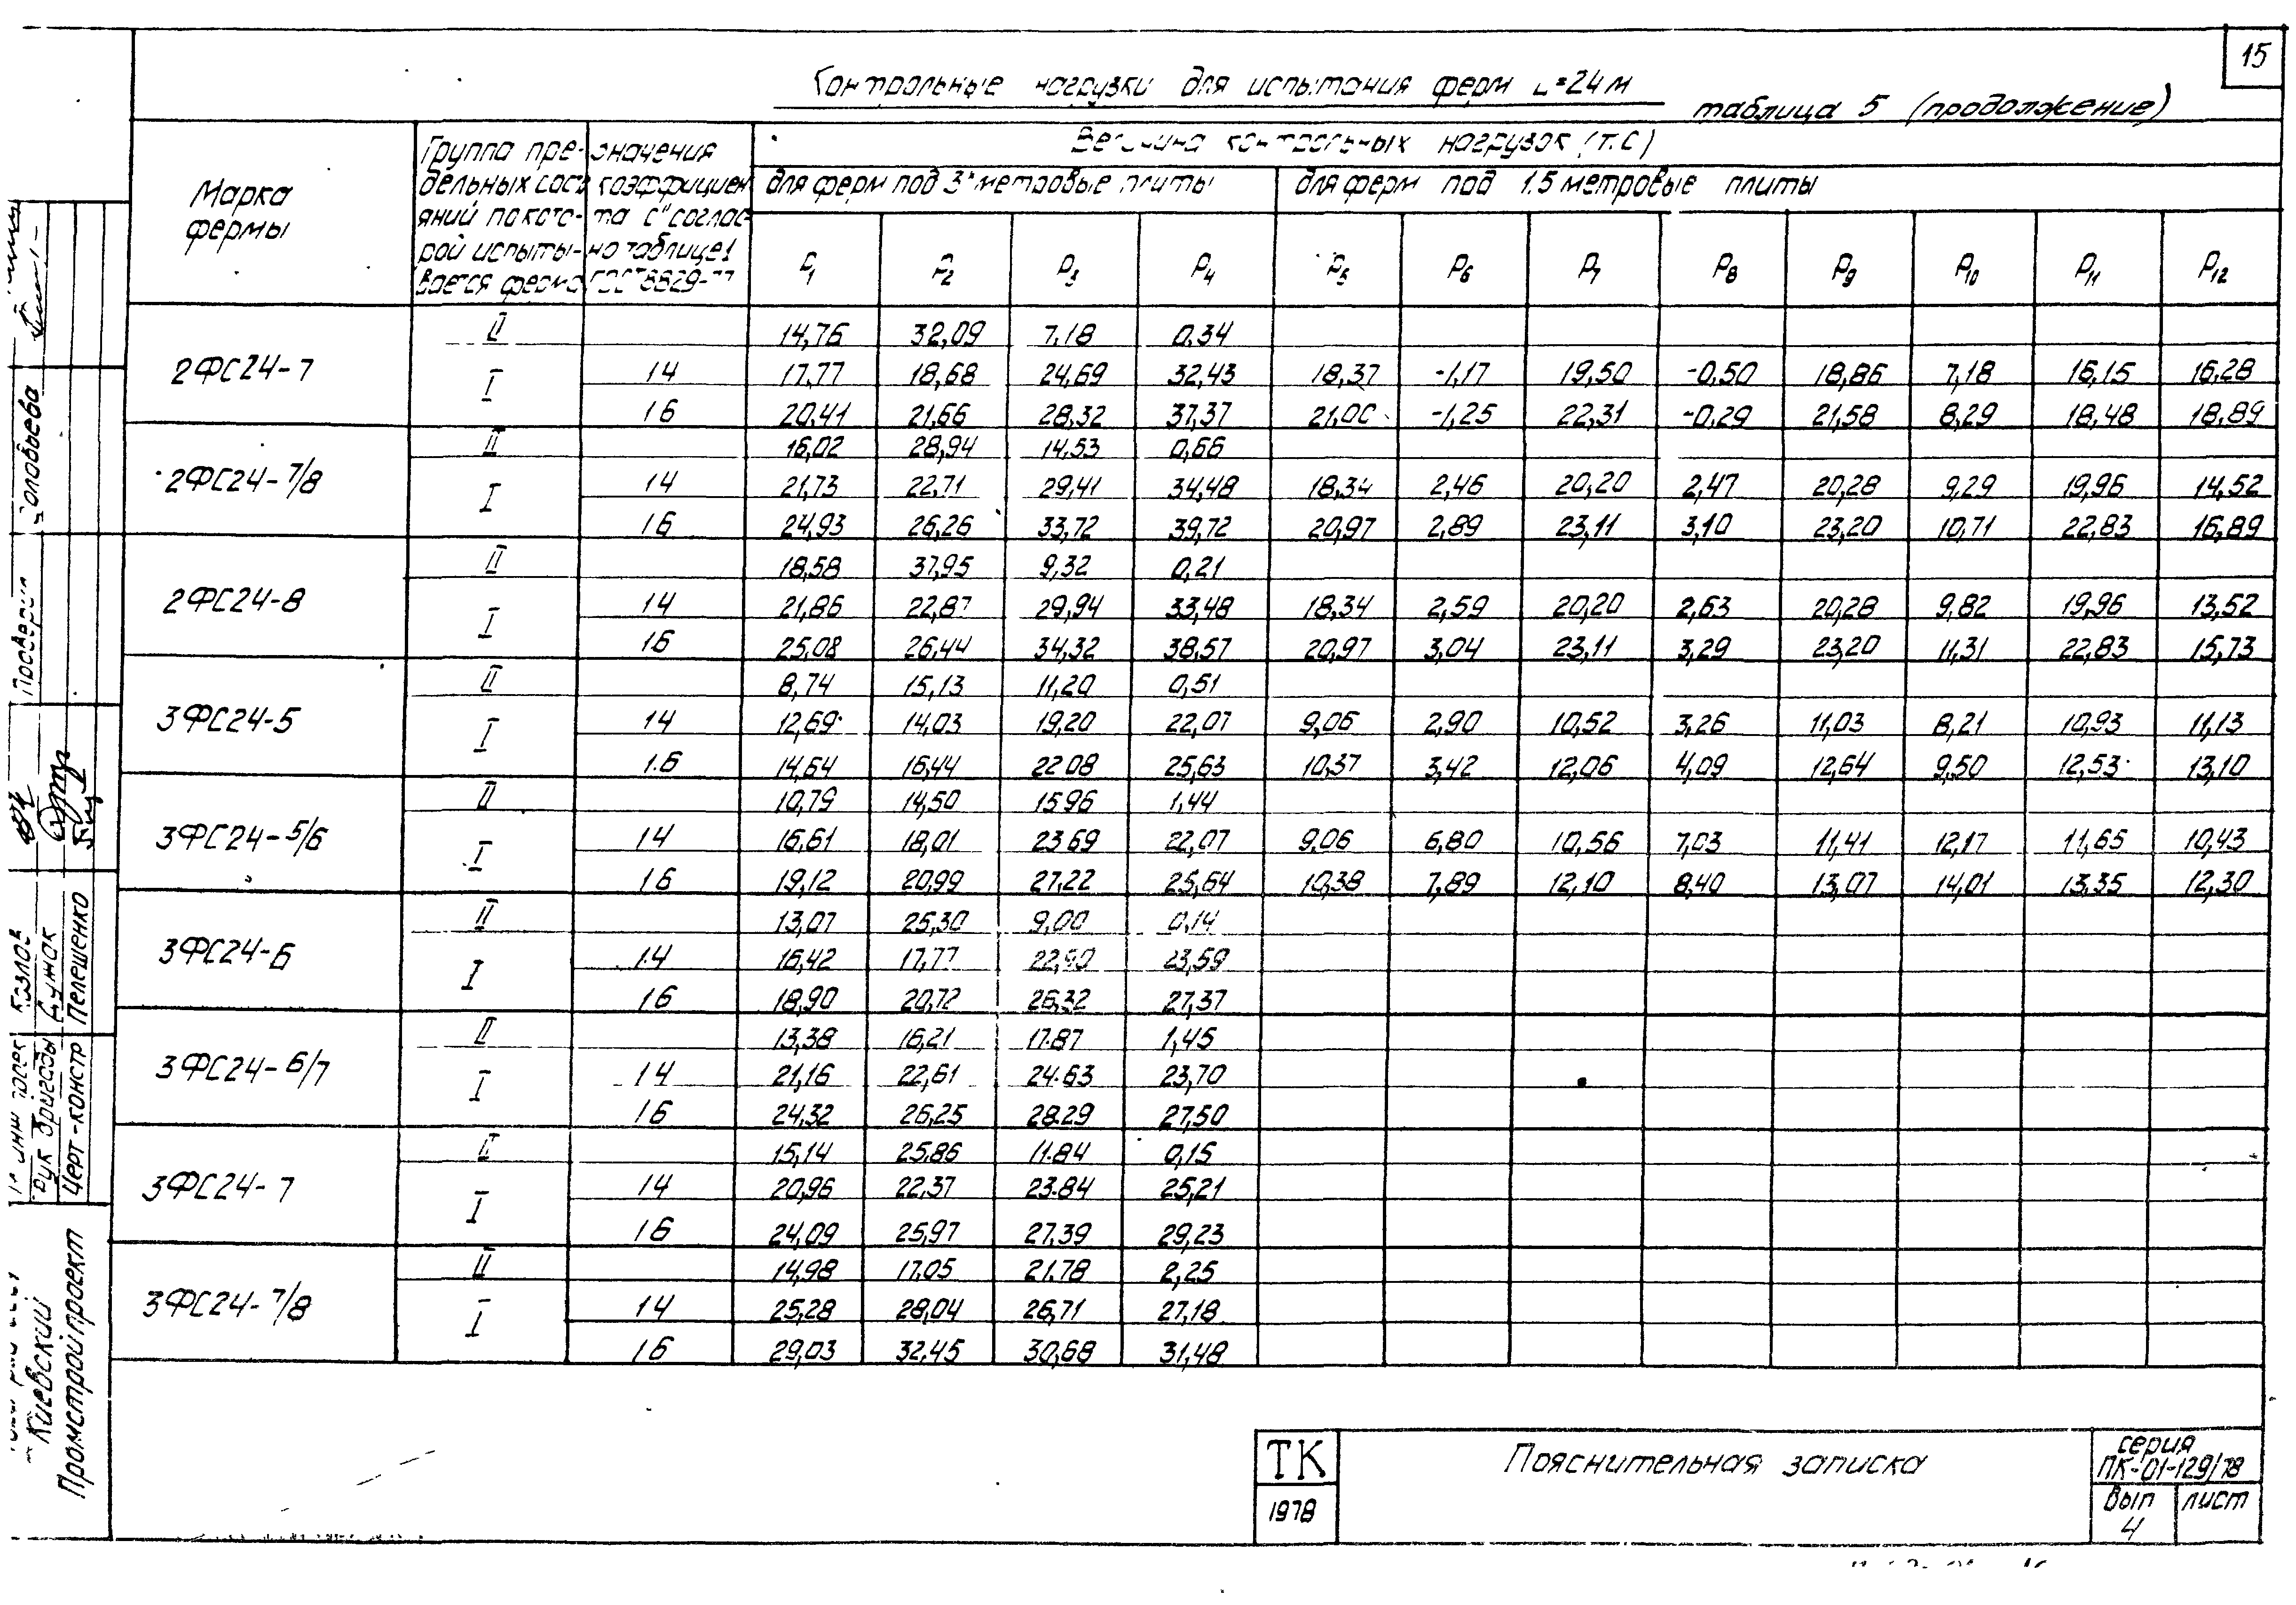 15
Контрольные нагрузки для испытания ферм L=24м
таблица 5 (продолжение)
Марка фермы
Группа предельных состояний по которой испытывается ферма
значения коэффициента "с" согласно таблице 1 ГОСТ 8829-77
Величина контрольных нагрузок (т.с)
для ферм под 3х метровые плиты
для ферм под 1.5 метровые плиты
P1 P2 P3 P4 P5 P6 P7 P8 P9 P10 P11 P12
2ФС24-7
II 14,76 32,09 7.18 0,34
I 1.4 17,77 18,68 24,69 32,43 18,37 -1,17 19,50 -0,50 18,86 7,18 16,15 16,28
1.6 20,41 21,66 28,32 37,37 21,00 -1,25 22,31 -0,29 21,58 8,29 18,48 18,89
2ФС24-7/8
II 16,02 28,94 14,53 0,66
I 1.4 21,73 22,71 29,41 34,48 18,34 2,46 20,20 2,47 20,28 9,29 19,96 14,52
1.6 24,93 26,26 33,72 39,72 20,97 2,89 23,11 3,10 23,20 10,71 22,83 16,89
2ФС24-8
II 18,58 37,95 9,32 0,21
I 1.4 21,86 22,87 29,94 33,48 18,34 2,59 20,20 2,63 20,28 9,82 19,96 13,52
1.6 25,08 26,44 34,32 38,57 20,97 3,04 23,11 3,29 23,20 11,31 22,83 15,73
3ФС24-5
II 8,74 15,13 11,20 0,51
I 1.4 12,69 14,03 19,20 22,07 9,06 2,90 10,52 3,26 11,03 8,21 10,93 11,13
1.6 14,64 16,44 22 08 25,63 10,37 3,42 12,06 4,09 12,64 9,50 12,53 13,10
3ФС24-5/6
II 10,79 14,50 15 96 1,44
I 1.4 16,61 18,01 23 69 22,07 9,06 6,80 10,56 7,03 11,41 12,17 11,65 10,43
1.6 19,12 20,99 27,22 25,64 10,38 7,89 12,10 8,40 13,07 14,01 13,35 12,30
3ФС24-6
II 13,07 25,30 9,00 0,14
I 1.4 16,42 17,77 22,90 23,59
1.6 18,90 20,72 26,32 27,37
3ФС24-6/7
II 13,38 16,21 17.87 1,45
I 1.4 21,16 22,61 24.63 23,70
1.6 24,32 26,25 28.29 27,50
3ФС24-7
II 15,14 25.86 11.84 0,15
I 1.4 20,96 22.37 23.84 25,21
1.6 24,09 25,97 27.39 29,23
3ФС24-7/8
II 14,98 17.05 21.78 2,25
I 1.4 25,28 28,04 26,71 27,18
1.6 29,03 32.45 30,68 31,48
ТК
1978
Пояснительная записка
серия
ПК-01-129/78
вып
4
лист
Проверил
Соловьева
Козлов
Рук бригады
Сужак
Черт-констр
Пелешенко
Киевский
Промстройпроект